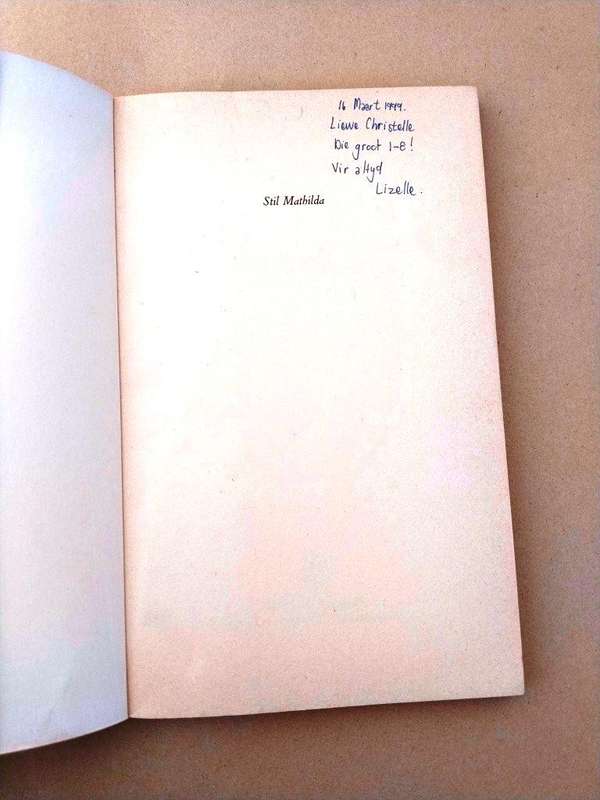 16 Maart 1999.
Liewe Christelle
Die groot 1-8!
Vir altyd
Lizelle.
Stil Mathilda